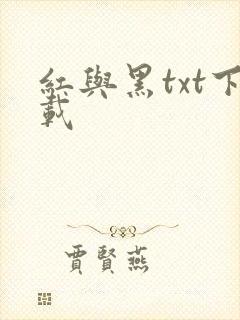 紅與黑txt下
載
賈賢燕